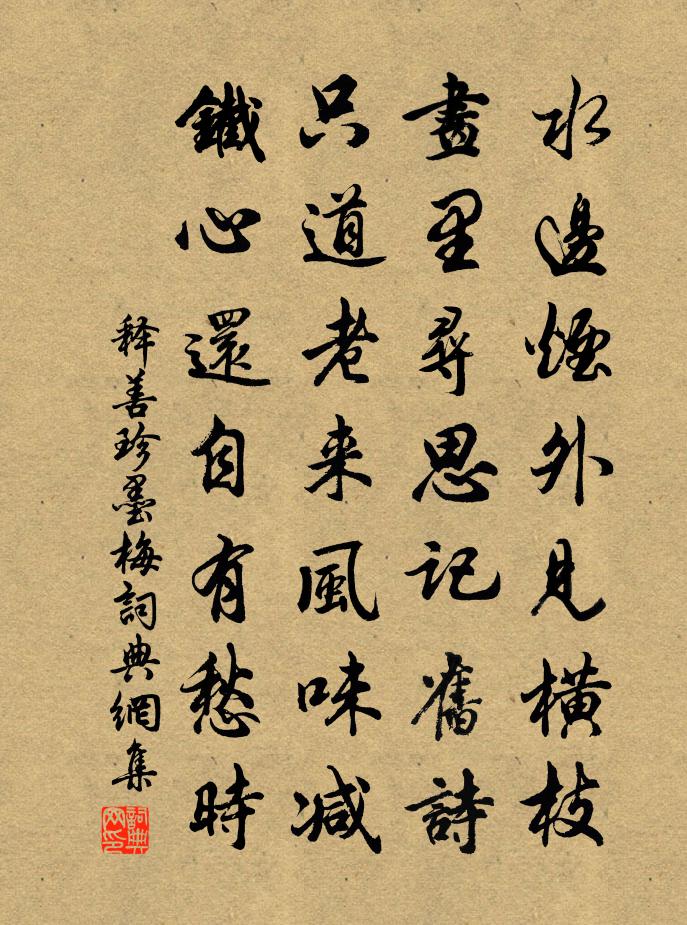 水邊煙外見橫枝
畫里尋思記舊詩
只道老来風味减
鐵心還自有愁時
释善珍墨梅詞典網集
詞典网印